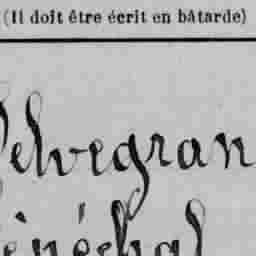 (Il doit être écrit en bâtarde)
Delvegran
Sénéchal